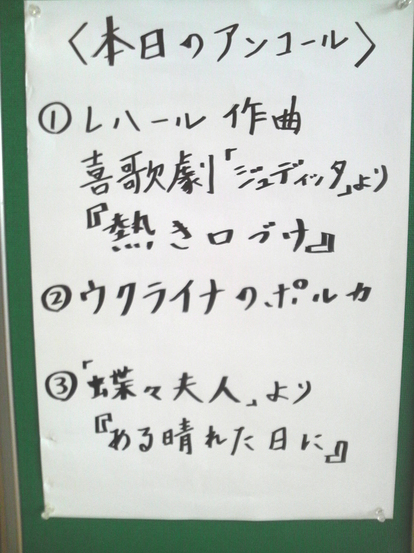 〈本日のアンコール〉
①レハール作曲
喜歌劇「ジュディッタ」より
『熱き口づけ』
②ウクライナの、ポルカ
③「蝶々夫人」より
『ある晴れた日に』